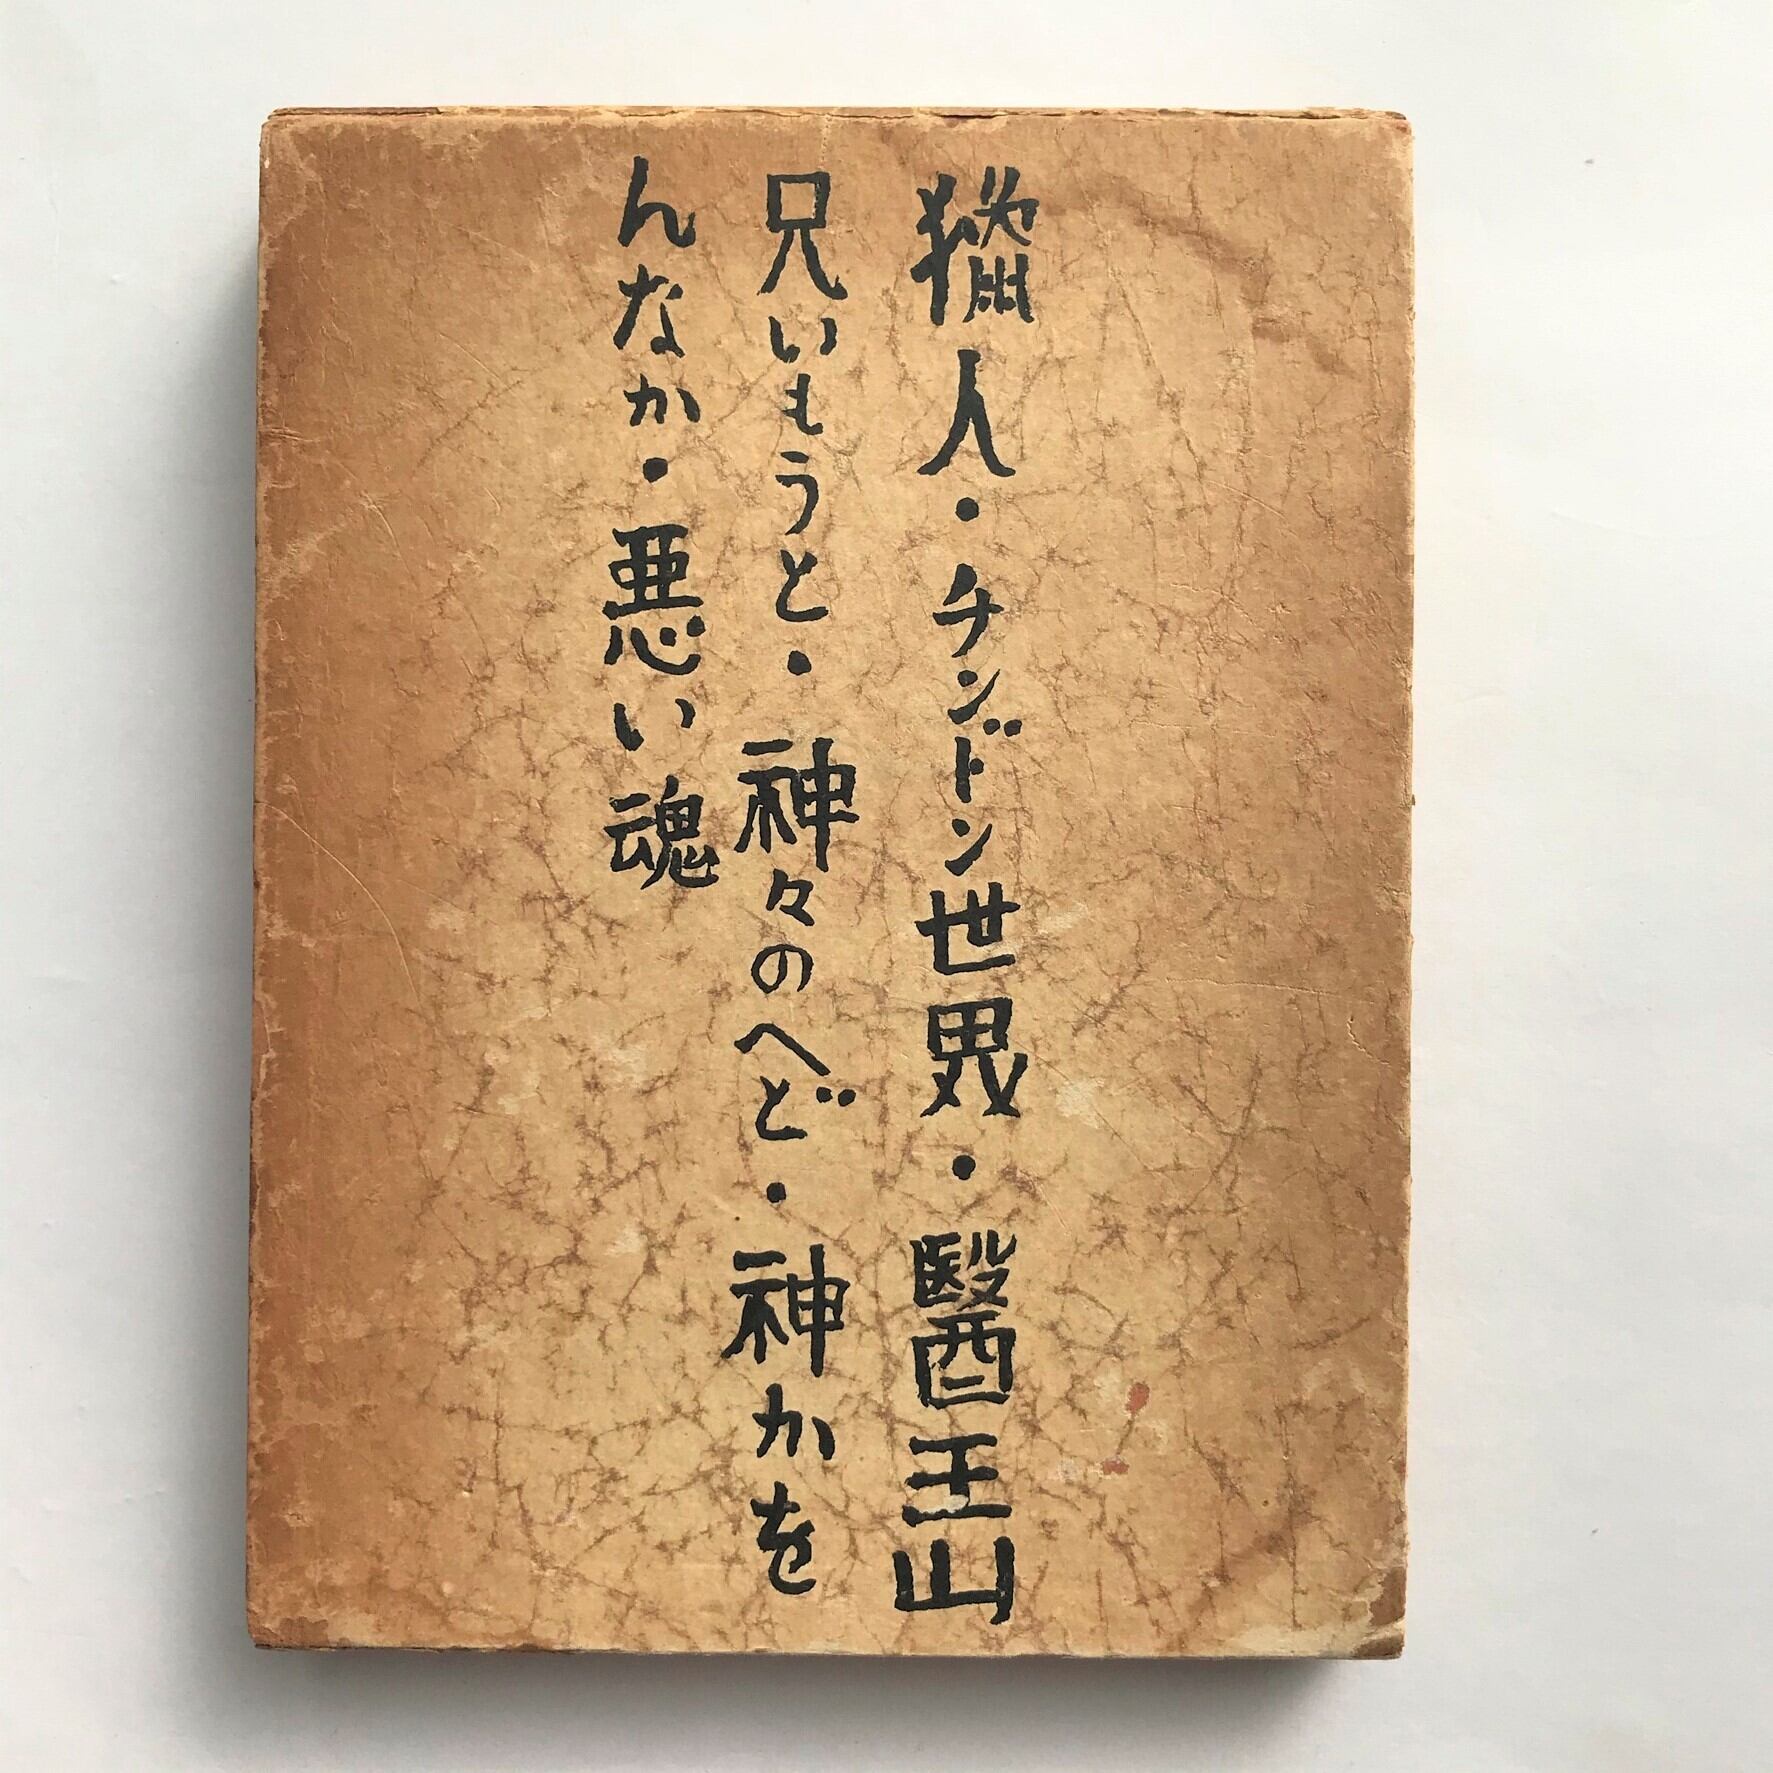 獵人・チンドン世界・醫王山
兄いもうと・神々のへど・神かを
んなか・悪い魂